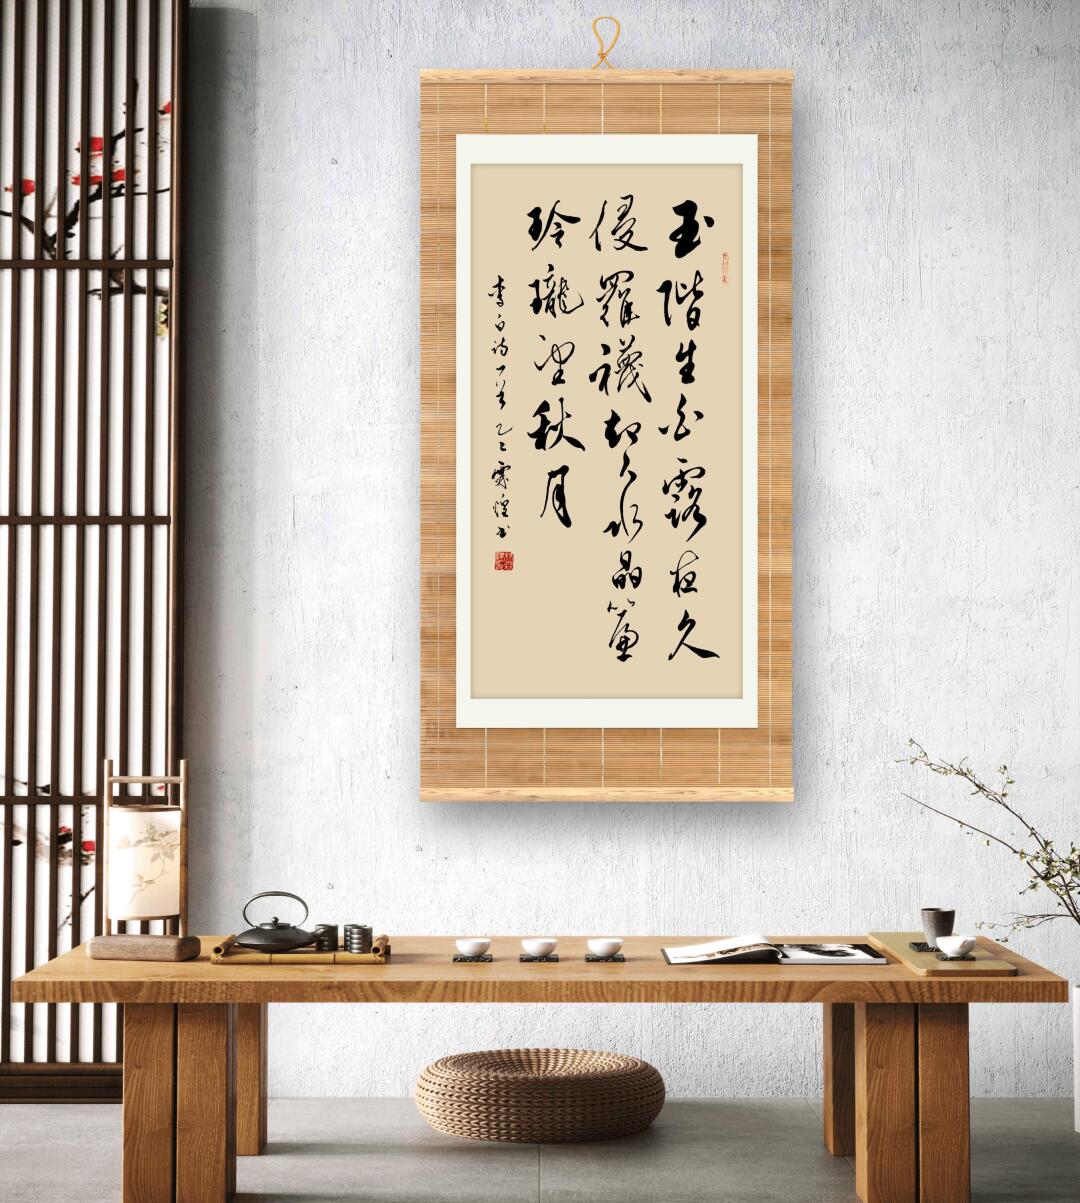 玉階生白露夜久
侵羅襪却下水晶簾
玲瓏望秋月
李白诗一首乙巳霖煌书